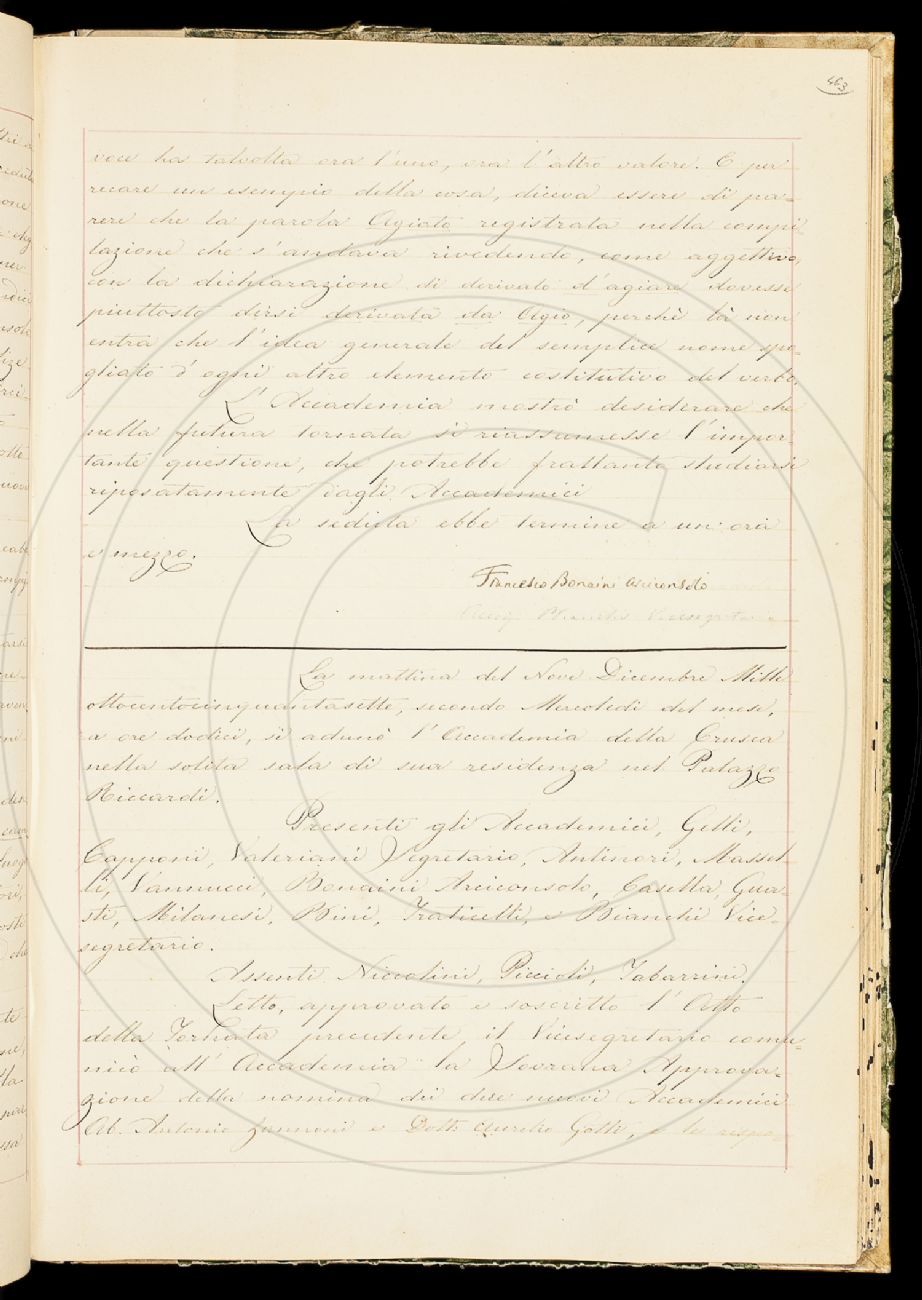 463
voce ha talvolta ora l'uno, ora l'altro valore. E per
recare un esempio della cosa, diceva essere di pa-
rere che la parola Agiato registrata nella compi-
lazione che s'andava rivedendo, come aggettivo,
con la dichiarazione di derivato d'agiare dovesse
piuttosto dirsi derivata da Agio, perchè là non
entra che l'idea generale del semplice nome spo-
gliato d'ogni altro elemento costitutivo del verbo.
L'Accademia mostrò desiderare che
nella futura tornata si riassumesse l'impor-
tante questione, che potrebbe frattanto studiarsi
riposatamente dagli Accademici
La seduta ebbe termine a un'ora
e mezzo.
Francesco Bonaini arciconsolo
Bianchi Vicesegretario
La mattina del Nove Dicembre Mille
ottocentocinquantasette, secondo Mercoledì del mese,
a ore dodici, si adunò l'Accademia della Crusca
nella solita sala di sua residenza nel Palazzo
Riccardi.
Presenti gli Accademici, Gelli,
Capponi, Valeriani Segretario, Antinori, Massel-
li, Vannucci, Bonaini Arciconsolo, Casella, Gua-
sti, Milanesi, Bini, Fraticelli, e Bianchi Vice-
segretario.
Assenti Niccolini, Piccioli, Tabarrini.
Letto, approvato e soscritto l'Atto
della Tornata precedente, il Vicesegretario comu-
nicò all'Accademia la Sovrana Approva-
zione della nomina dei due nuovi Accademici
Ab. Antonio Zannoni e Dott. Aurelio Gotti, e le rispo-